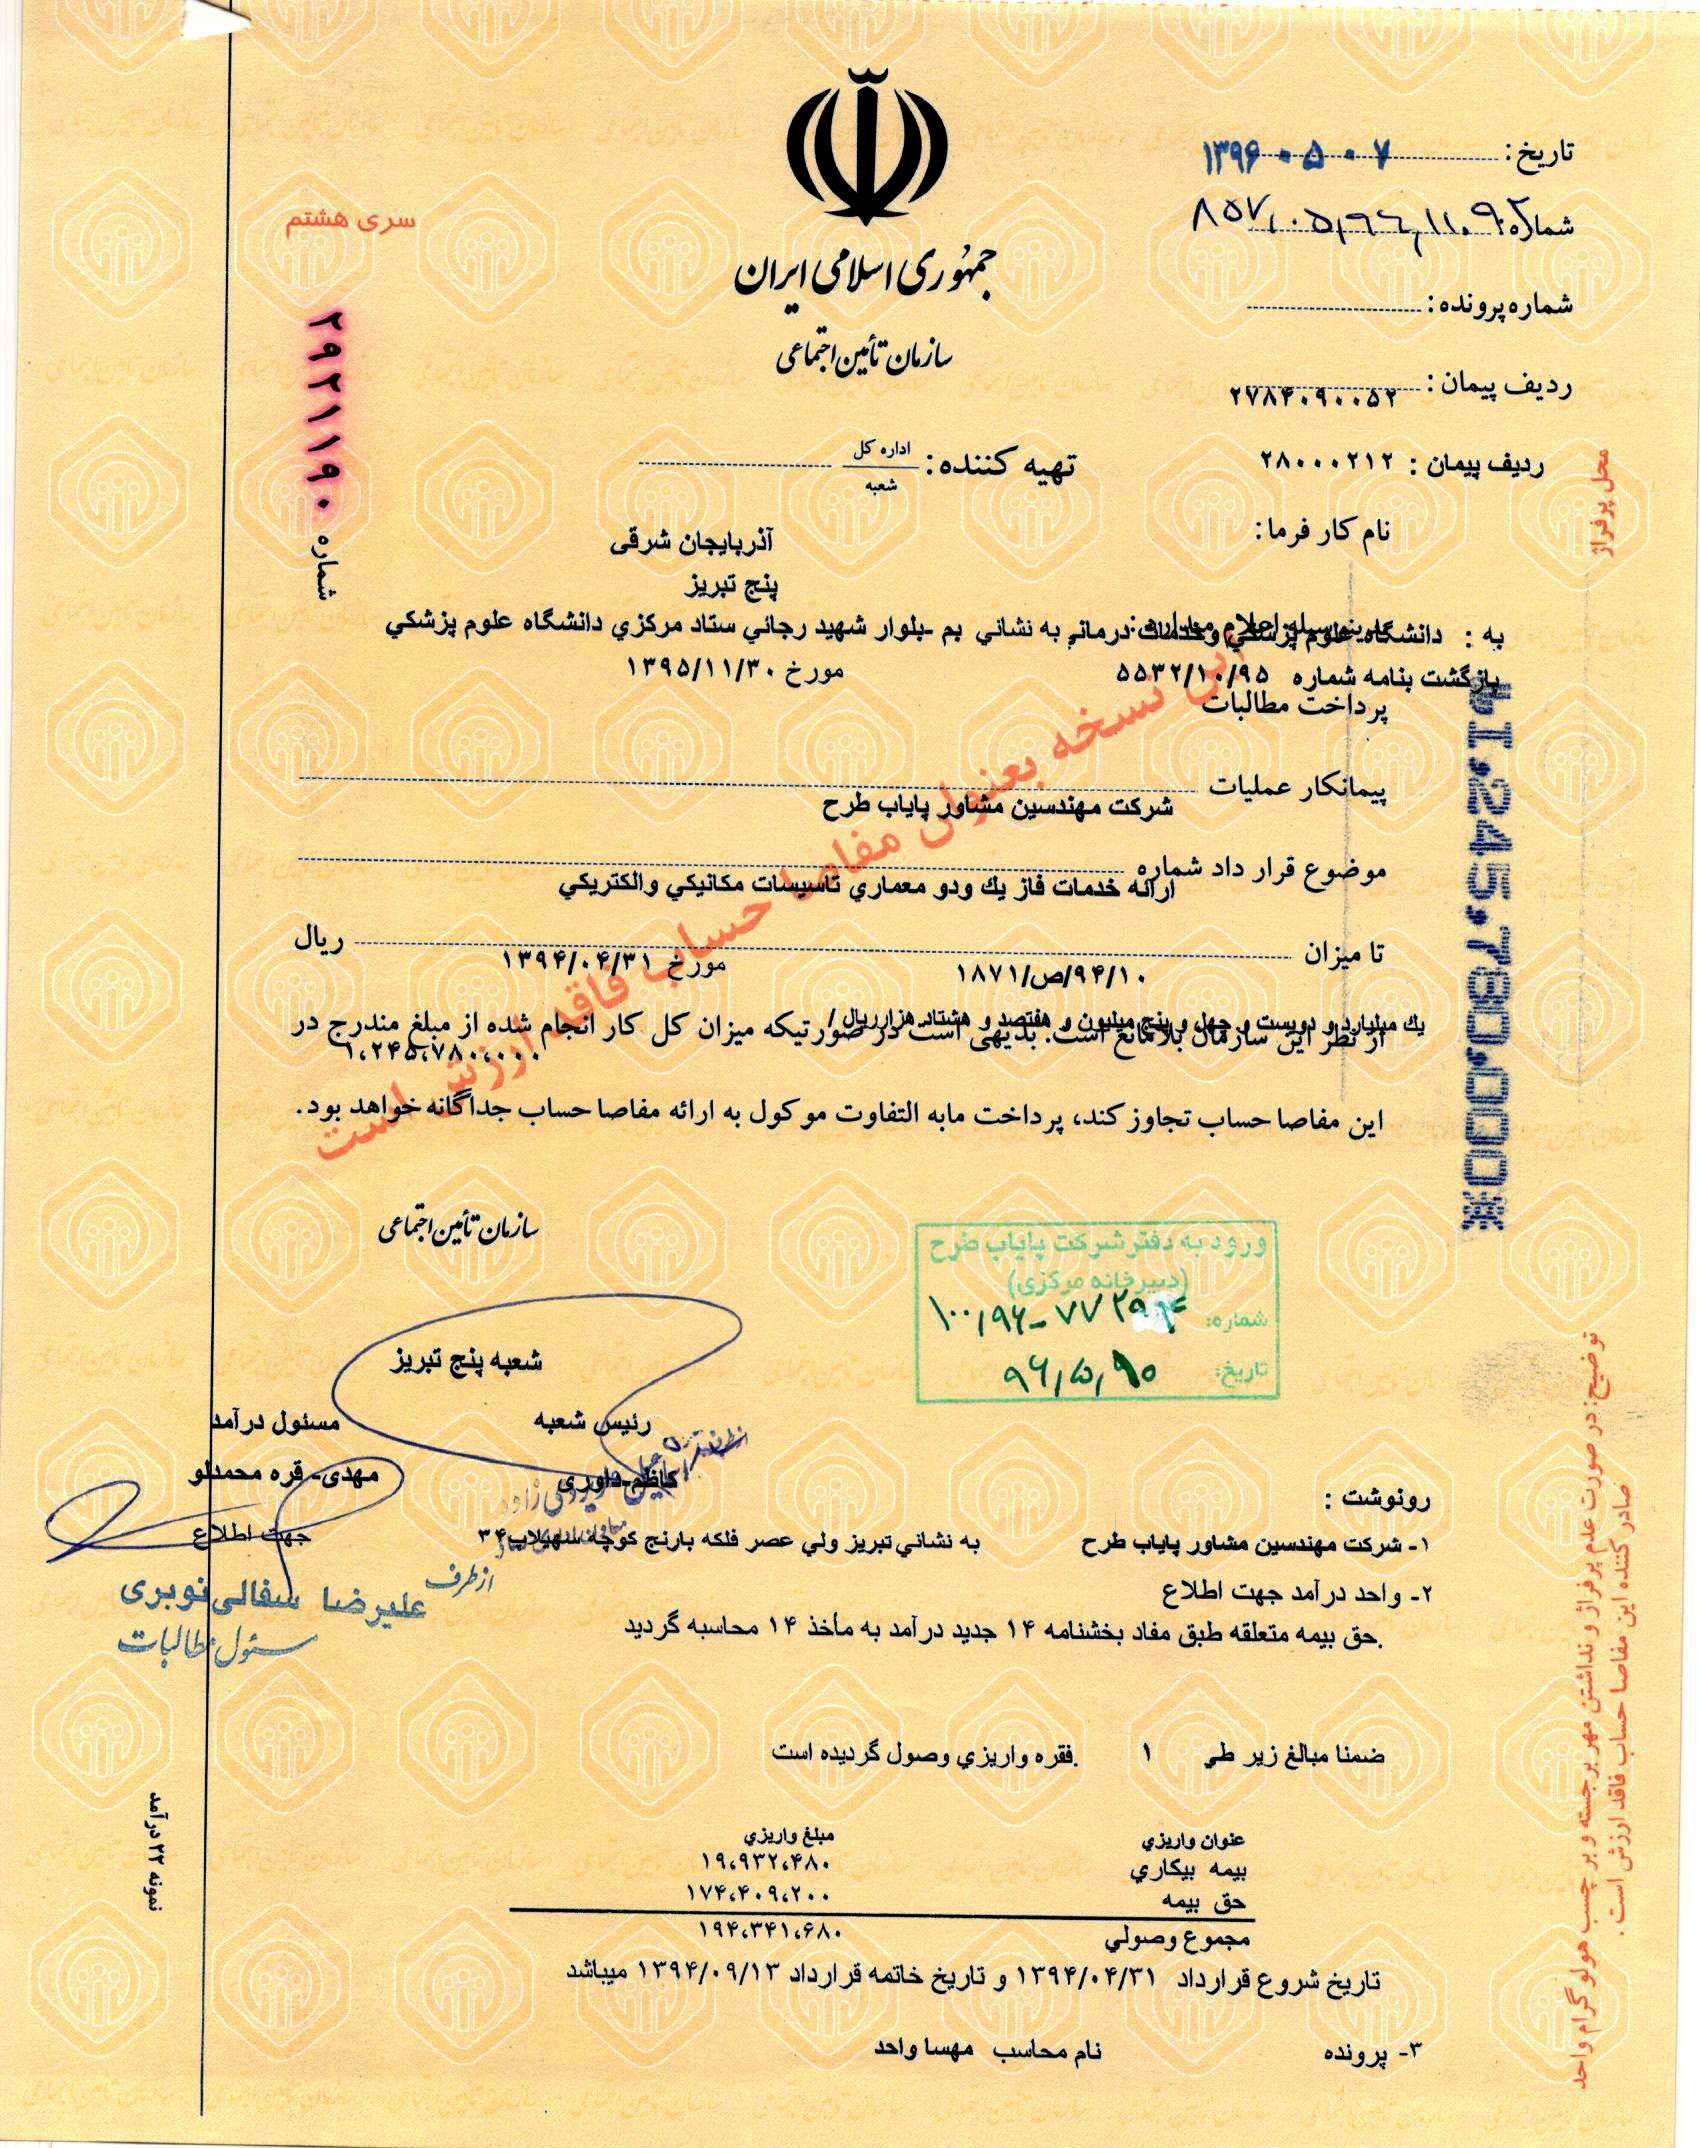 تاریخ: ۱۳۹۶۰۵۰۷
شماره:
شماره پرونده:
ردیف پیمان: ۲۷۸۴۰۹۰۰۵۲
ردیف پیمان: ۲۸۰۰۰۲۱۲
جمهوری اسلامی ایران
سازمان تأمین اجتماعی
سری هشتم
شماره ۲۹۲۱۱۹۰
تهیه کننده: اداره کل
شعبه
آذربایجان شرقی
پنج تبریز
نام کار فرما:
به: دانشگاه علوم پزشکي وخدمات درماني به نشاني بم -بلوار شهید رجائي ستاد مرکزي دانشگاه علوم پزشکي
بدینوسیله اعلام میدارد:
بازگشت بنامه شماره ۵۵۳۲/۱۰/۹۵ مورخ ۱۳۹۵/۱۱/۳۰
پرداخت مطالبات
پیمانکار عملیات
شرکت مهندسین مشاور پایاب طرح
موضوع قرار داد شماره
ارائه خدمات فاز یك ودو معماري تاسیسات مکانیکي والکتریکي
تا میزان ریال
۱۸۷۱/ص/۹۴/۱۰ مورخ ۱۳۹۴/۰۴/۳۱
یك میلیارد و دویست و چهل و پنج میلیون و هفتصد و هشتاد هزارریال /
از نظر این سازمان بلامانع است. بدیهی است در صورتیکه میزان کل کار انجام شده از مبلغ مندرج در
۱،۲۴۵،۷۸۰،۰۰۰
این مفاصا حساب تجاوز کند، پرداخت مابه التفاوت موکول به ارائه مفاصا حساب جداگانه خواهد بود.
این نسخه بعنوان مفاصا حساب فاقد ارزش است
1,245,780,000※
محل پرفراژ
سازمان تأمین اجتماعی
ورود به دفتر شرکت پایاب طرح
(دبیرخانه مرکزی)
شماره:
تاریخ:
شعبه پنج تبریز
رئیس شعبه مسئول درآمد
کاظم-داوری مهدی- قره محمدلو
جهت اطلاع
از طرف
علیرضا سفالی نوبری
مسئول مطالبات
رونوشت :
۱- شرکت مهندسین مشاور پایاب طرح به نشاني تبریز ولي عصر فلکه بارنج کوچه سهیلاپ۳۴
۲- واحد درآمد جهت اطلاع
.حق بیمه متعلقه طبق مفاد بخشنامه ۱۴ جدید درآمد به مأخذ ۱۴ محاسبه گردید
ضمنا مبالغ زیر طي ۱ .فقره واریزي وصول گردیده است
عنوان واریزي مبلغ واریزي
بیمه بیکاري ۱۹،۹۳۲،۴۸۰
حق بیمه ۱۷۴،۴۰۹،۲۰۰
مجموع وصولي ۱۹۴،۳۴۱،۶۸۰
تاریخ شروع قرارداد ۱۳۹۴/۰۴/۳۱ و تاریخ خاتمه قرارداد ۱۳۹۴/۰۹/۱۳ میباشد
۳- پرونده نام محاسب مهسا واحد
نمونه ۲۲ درآمد
توضیح: در صورت عدم پرفراژ و نداشتن مهر برجسته و بر چسب هولوگرام واحد
صادر کننده این مفاصا حساب فاقد ارزش است.